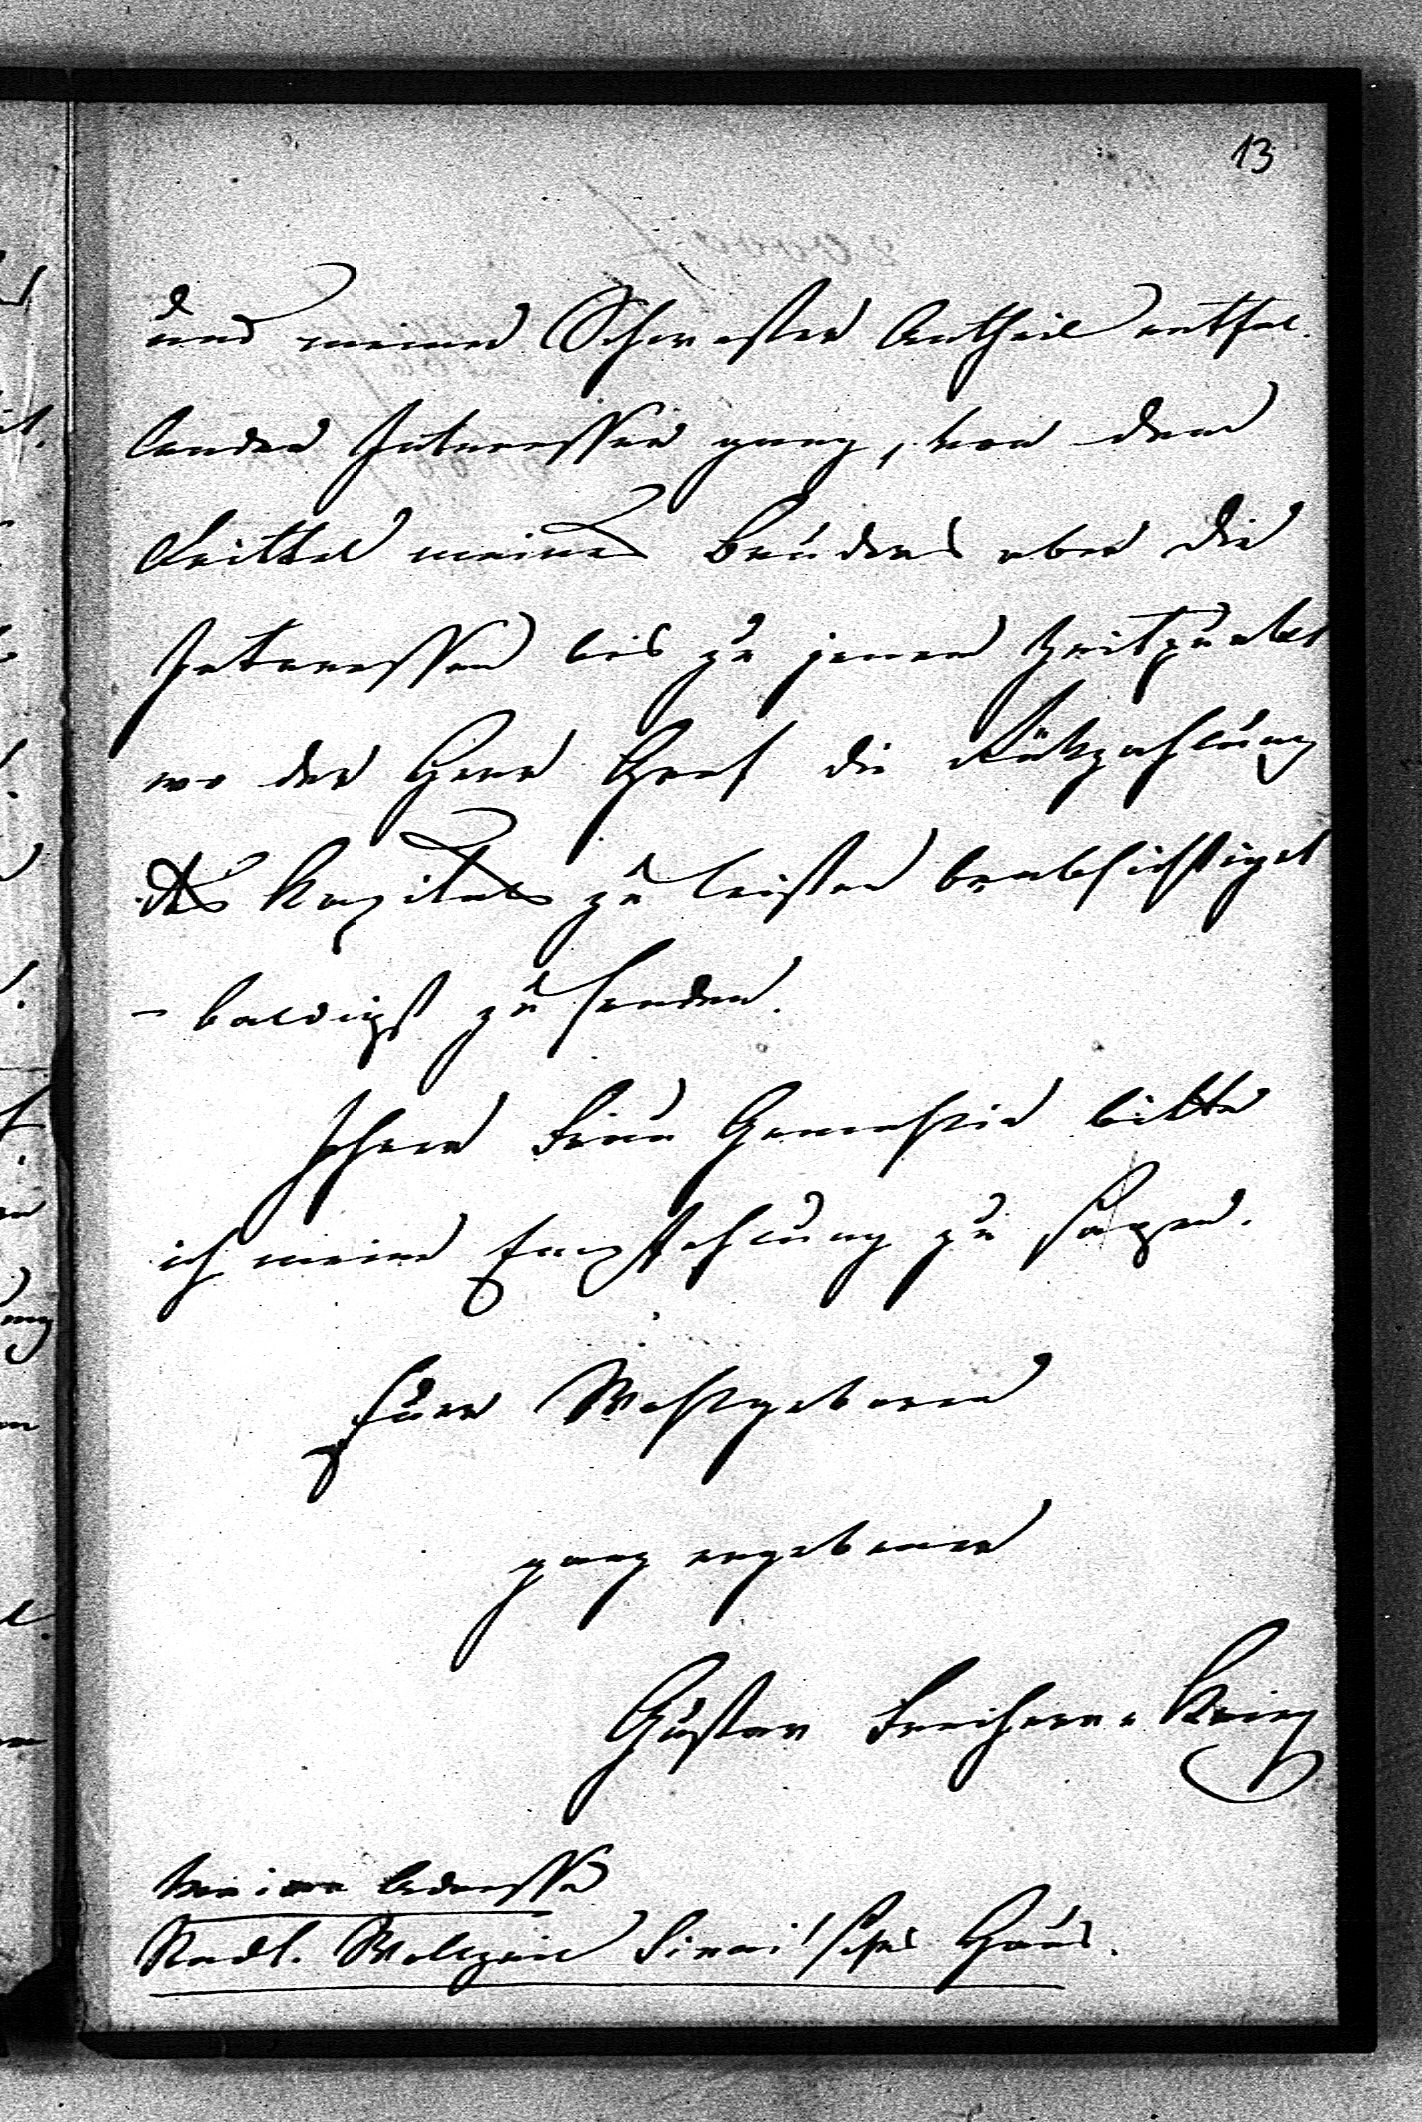 13
und meiner Schwester Antheil entfal-
lenden Interessen ganz, von dem
Drittel meines Bruders aber die
Interessen bis zu jenem Zeitpunkt
wo der Herr Graf die Rükzahlung
des Kapitals zu leisten beabsichtiget
– baldigst zu senden.
Ihrer Frau Gemahlin bitte
ich meine Empfehlung zu sagen.
Euer Wohlgeboren
ganz ergebener
Gustav Freiherr v Krieg
Meine Adresse
Stadt. Wollzeile Sinai'sches Haus.